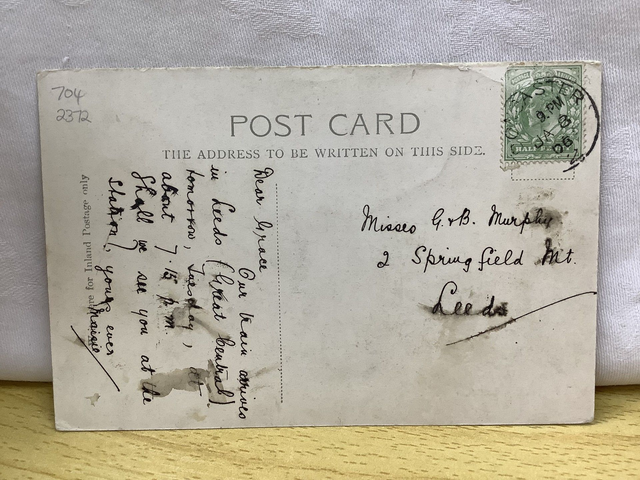 704
2372
POST CARD
THE ADDRESS TO BE WRITTEN ON THIS SIDE.
CASTER
9. PM
JA 8
06
HALF PENNY
Misses G. & B. Murphy
2 Springfield Mt.
Leeds
Dear Grace
Our train arrives
in Leeds (Great Central)
tomorrow, Tuesday,
about 7.15 p.m.
Shall we see you at the
station? yours ever
Maisie
for Inland Postage only